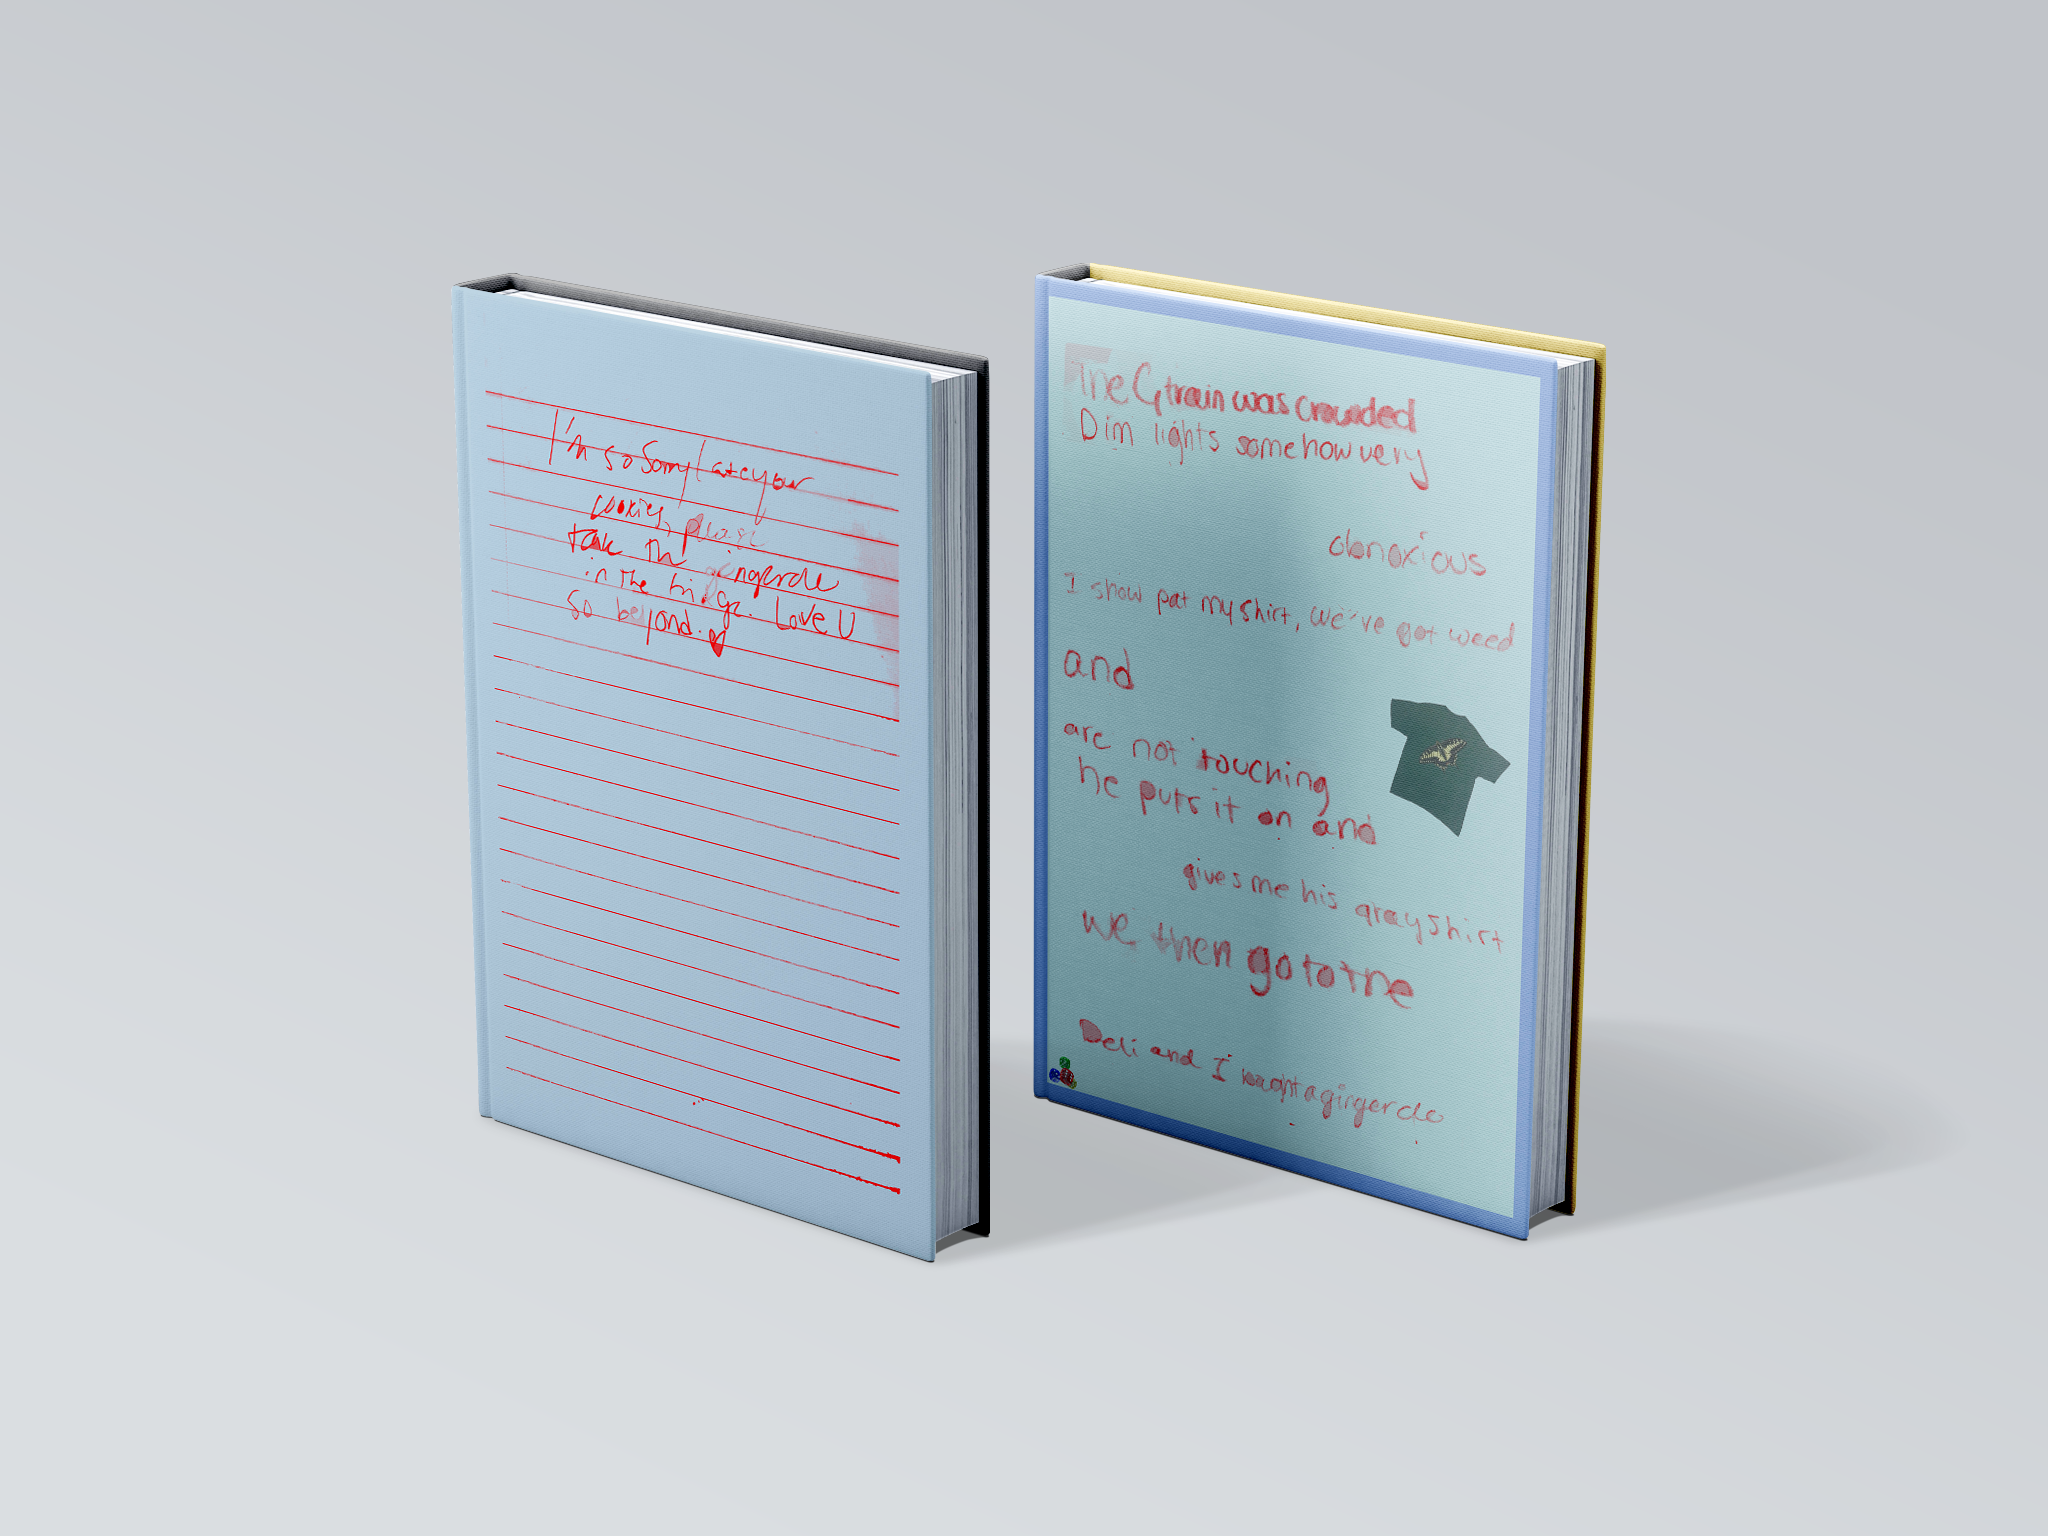 I'm so Sorry I ate your
cookies, please
take the gingerale
in the fridge. Love U
so beyond.
The G train was crowded
Dim lights somehow very
obnoxious
I show pat my shirt, we've got weed
and
are not touching
he puts it on and
gives me his gray shirt
we then go to the
Deli and I bought a gingerale